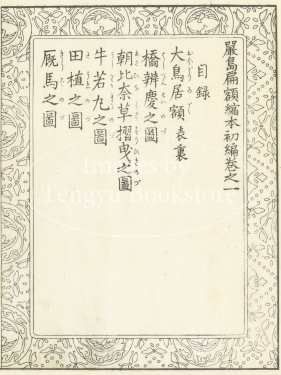 嚴島扁額縮本初編卷之一
目録
大鳥居額表裏
橋辨慶之圖
朝比奈草摺曳之圖
牛若丸之圖
田植之圖
厩馬之圖
Images by
Tengyu Bookstore